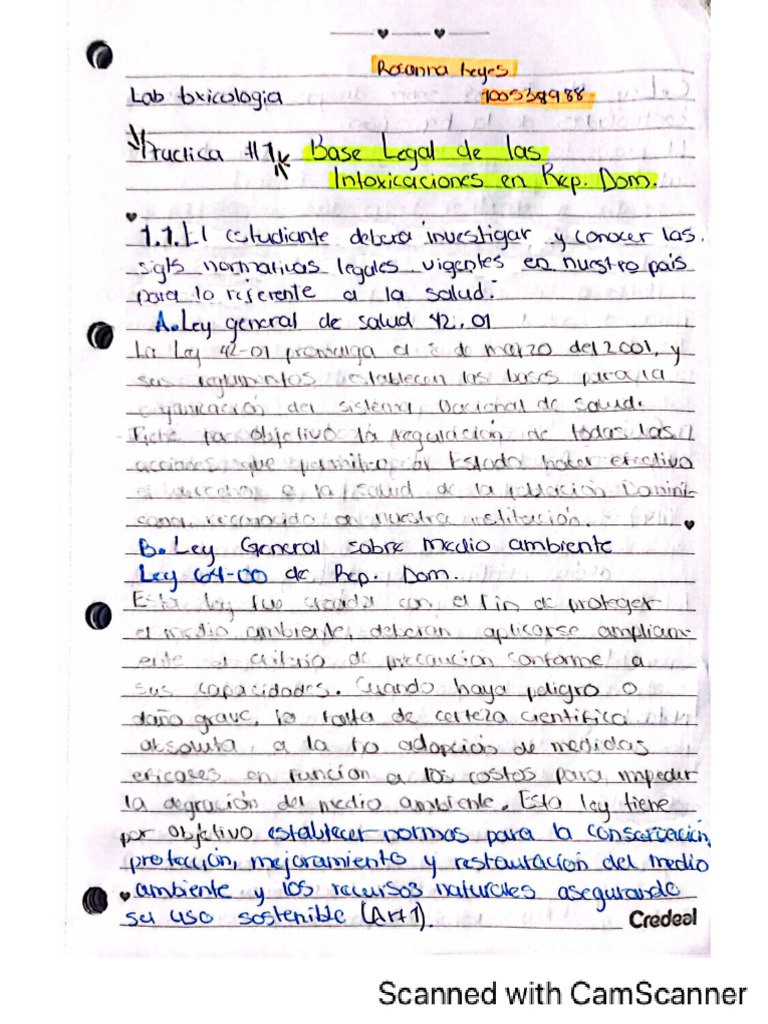 Rosanna Reyes
Lab toxicologia 100538988
Practica #1 Base Legal de las
Intoxicaciones en Rep. Dom.
1.1. El estudiante debera investigar y conocer las
sigts normativas legales vigentes en nuestro país
para lo referente a la salud.
A. Ley general de salud 42.01
La Ley 42-01 promulga el 8 de marzo del 2001, y
sus reglamentos establecen las bases para la
organización del sistema Nacional de Salud.
Tiene por objetivo la regulación de todas las
acciones que permiten al Estado hacer efectivo
el derecho a la salud de la población Domini-
cana, reconocido en nuestra
B. Ley General sobre medio ambiente
Ley 64-00 de Rep. Dom.
Esta ley fue creada con el fin de proteger
el medio ambiente, deberán aplicarse ampliam-
ente el criterio de precaución conforme a
sus capacidades. Cuando haya peligro o
daño grave, la falta de certeza cientifica
absoluta, a la no adopción de medidas
eficases en función a los costos para impedir
la degración del medio ambiente. Esta ley tiene
por objetivo establecer normas para la conservación,
protección, mejoramiento y restauración del medio
ambiente y los recursos naturales asegurando
su uso sostenible (Art 1).
Credeal
Scanned with CamScanner